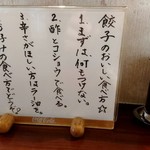 餃子のおいしい食べ方☆
1.まずは、何もつけない。
2.酢とコショウで食べる。
3.辛さがほしい方はラー油を。
お子様の食べ方でどうぞ